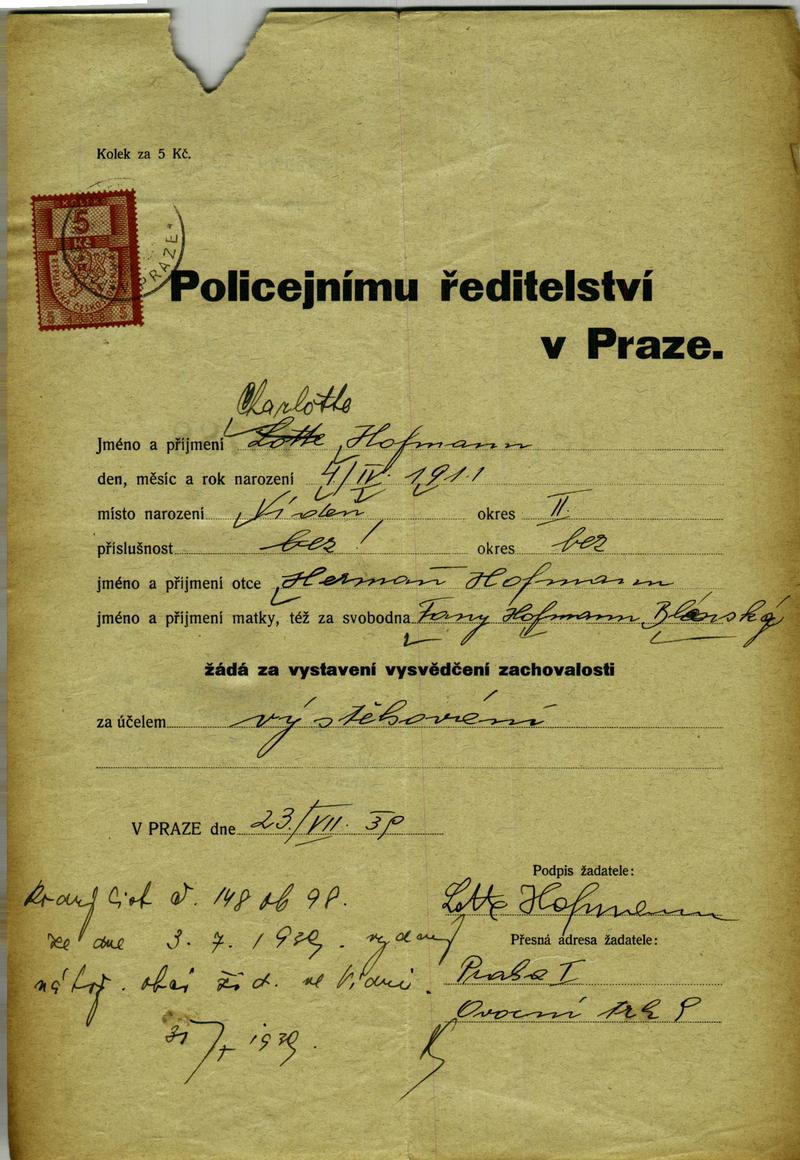 Kolek za 5 Kč.
KOLEK
5
Kč
PRAZE
5 5
Policejnímu ředitelství
v Praze.
Charlotte
Jméno a příjmení Lotte Hofmann
den, měsíc a rok narození 4/IV. 1911
místo narození Vídeň okres II.
příslušnost bez! okres bez
jméno a příjmení otce Herman Hofmann
jméno a příjmení matky, též za svobodna Fany Hofmann Blanská
žádá za vystavení vysvědčení zachovalosti
za účelem vystěhování
V PRAZE dne 23./VII. 39
Podpis žadatele:
Lotte Hofmann
Přesná adresa žadatele:
Praha I
Ovocní trh 9
list č. 148 98.
ze dne 3. 7. 1939. vydaný
nábož. obcí žid. ve Vídni.
31/7 1939.